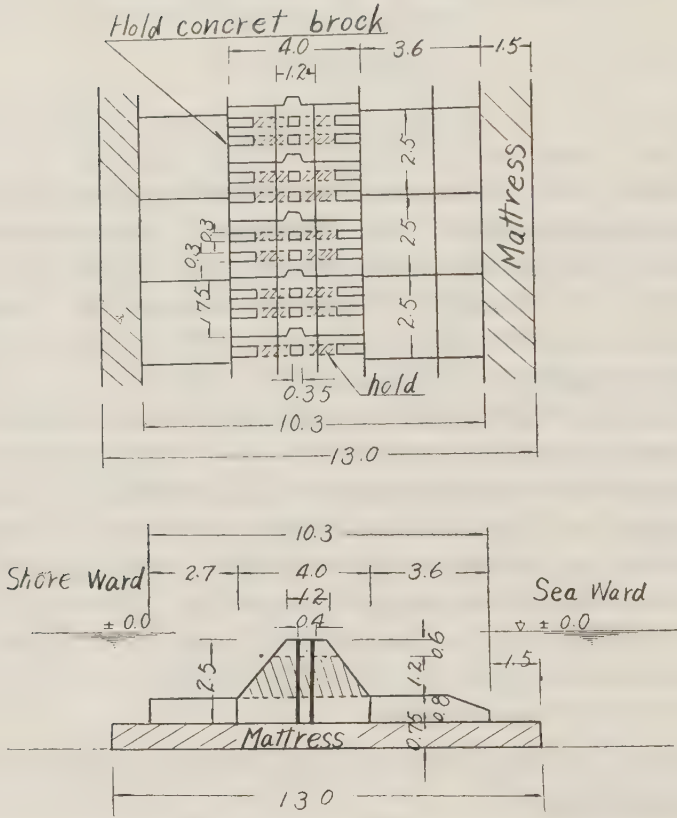 Hold concret brock
4.0
3.6
1.5
1.2
2.5
2.5
2.5
Mattress
0.3
0.3
1.75
0.35
hold
10.3
13.0
10.3
Shore Ward
2.7
4.0
3.6
Sea Ward
1.2
± 0.0
0.4
± 0.0
2.5
0.6
1.2
1.5
0.8
0.75
Mattress
13.0